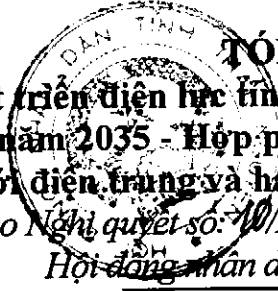 DÂN TỈNH
TÓ
t triển điện lực tỉn
năm 2035 - Hợp p
ới điện trung và h
o Nghị quyết số: 10/
Hội đồng nhân d